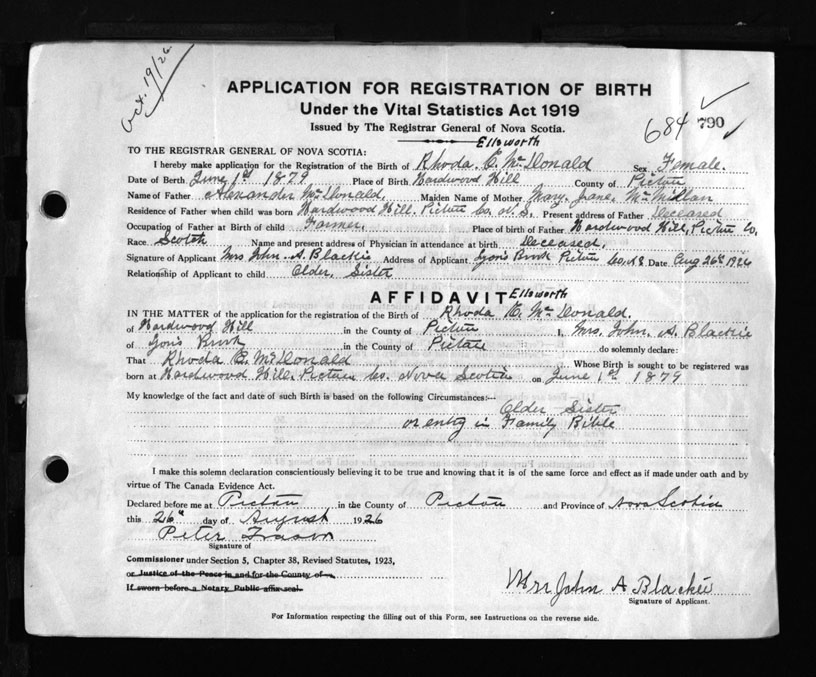 Oct. 19/26
APPLICATION FOR REGISTRATION OF BIRTH
Under the Vital Statistics Act 1919
Issued by The Registrar General of Nova Scotia.
684 790
Ellsworth
TO THE REGISTRAR GENERAL OF NOVA SCOTIA:
I hereby make application for the Registration of the Birth of Rhoda. E. McDonald Sex Female.
Date of Birth June 1st 1879 Place of Birth Hardwood Hill County of Pictou
Name of Father Alexander McDonald. Maiden Name of Mother Mary Jane McMillan
Residence of Father when child was born Hardwood Hill. Pictou Co. N.S. Present address of Father Deceased
Occupation of Father at Birth of child Farmer. Place of birth of Father Hardwood Hill, Pictou Co.
Race Scotch Name and present address of Physician in attendance at birth Deceased.
Signature of Applicant Mrs John. A. Blackie Address of Applicant Lyon's Brook Pictou Co. N.S. Date Aug 26th 1926
Relationship of Applicant to child Older, Sister
AFFIDAVIT Ellsworth
IN THE MATTER of the application for the registration of the Birth of Rhoda E. McDonald.
of Hardwood Hill in the County of Pictou I, Mrs. John. A. Blackie
of Lyon's Brook in the County of Pictou do solemnly declare:
That Rhoda E. McDonald Whose Birth is sought to be registered was
born at Hardwood Hill. Pictou Co. Nova Scotia on June 1st 1879
My knowledge of the fact and date of such Birth is based on the following Circumstances:—
Older Sister
or entry in Family Bible
I make this solemn declaration conscientiously believing it to be true and knowing that it is of the same force and effect as if made under oath and by
virtue of The Canada Evidence Act.
Declared before me at Pictou in the County of Pictou and Province of Nova Scotia
this 26th day of August 1926
Peter Fraser
Signature of
Commissioner under Section 5, Chapter 38, Revised Statutes, 1923,
or Justice of the Peace in and for the County of
If sworn before a Notary Public affix seal.
Mrs John A Blackie
Signature of Applicant.
For Information respecting the filling out of this Form, see Instructions on the reverse side.